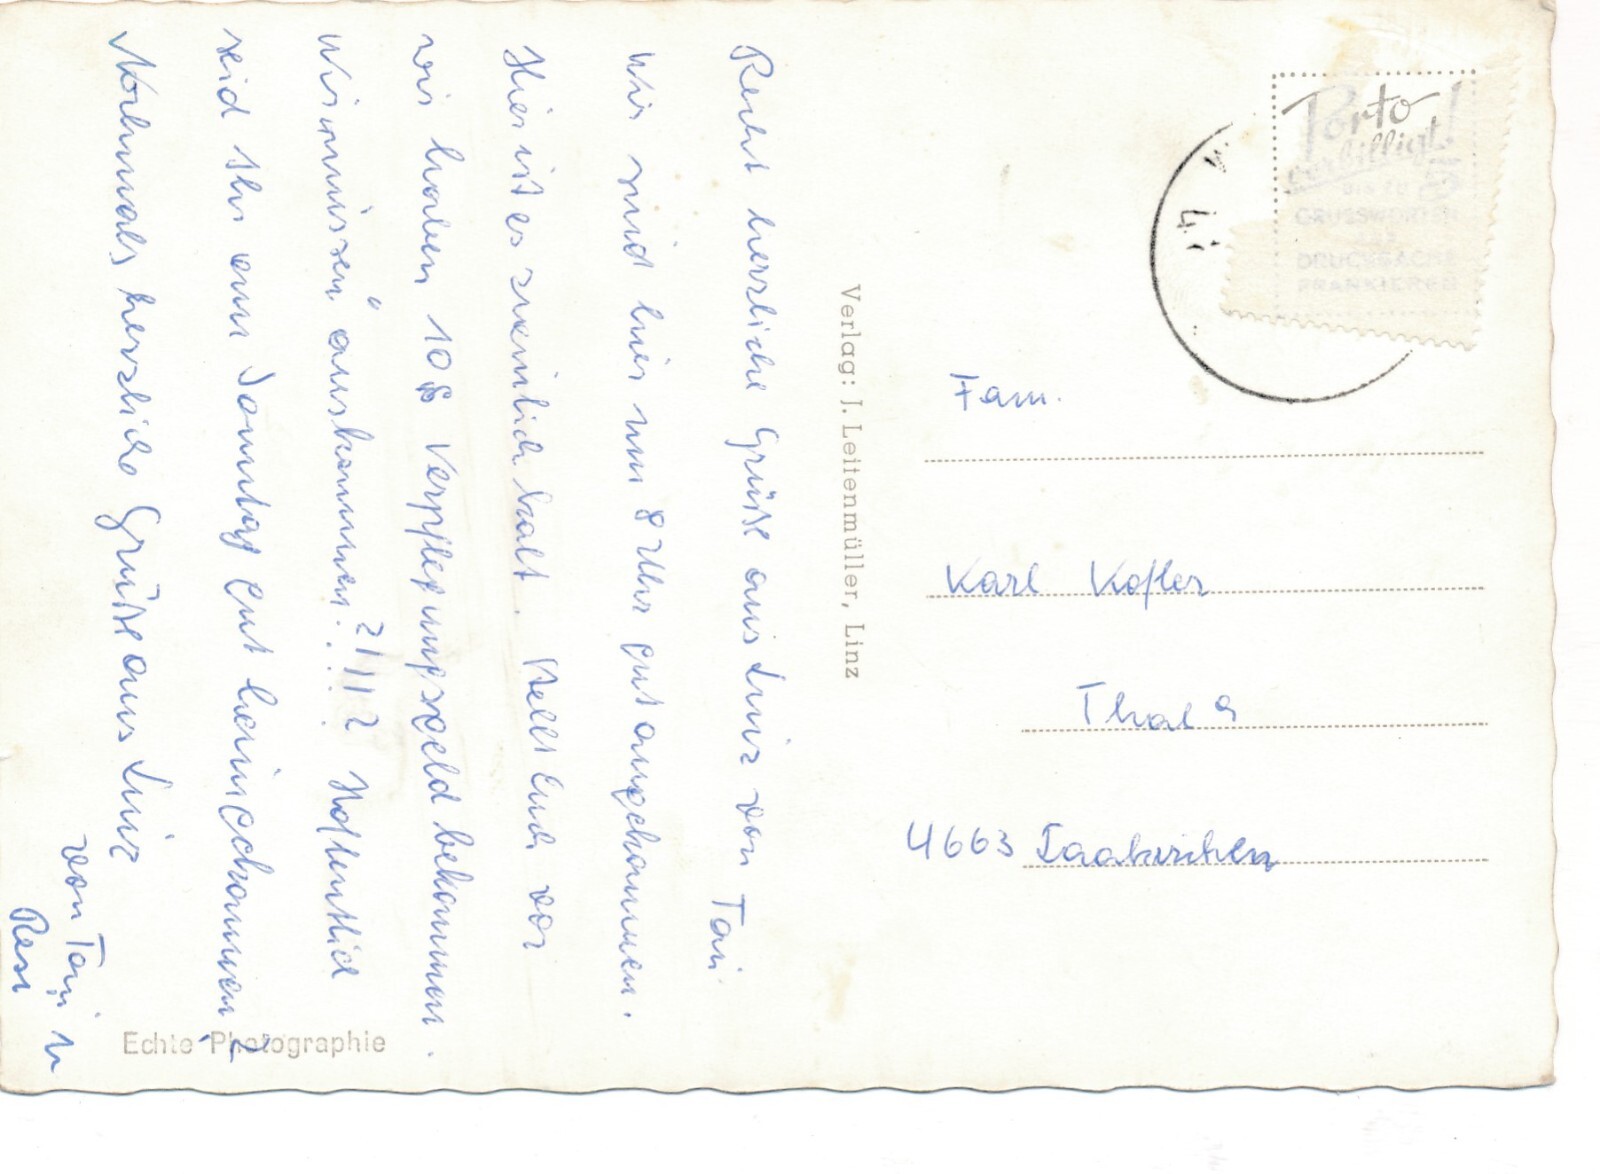 Recht herzliche Grüße aus Linz von Toni.
Wir sind hier um 8 Uhr gut angekommen.
Hier ist es ziemlich kalt. Stellt Euch vor
wir haben 108 Verpflegungsgeld bekommen.
Wir müssen "auskommen!!?!!? Hoffentlich
seid Ihr am Sonntag gut heimgekommen?
Nochmals herzliche Grüße aus Linz
von Toni u
Resi
Echte Photographie
Verlag: J. Leitenmüller, Linz
Porto
verbilligt!
bis zu 5
GRUSSWORTEN
ALS
DRUCKSACHE
FRANKIEREN
Fam.
Karl Kofler
Thal 9
4663 Laakirchen